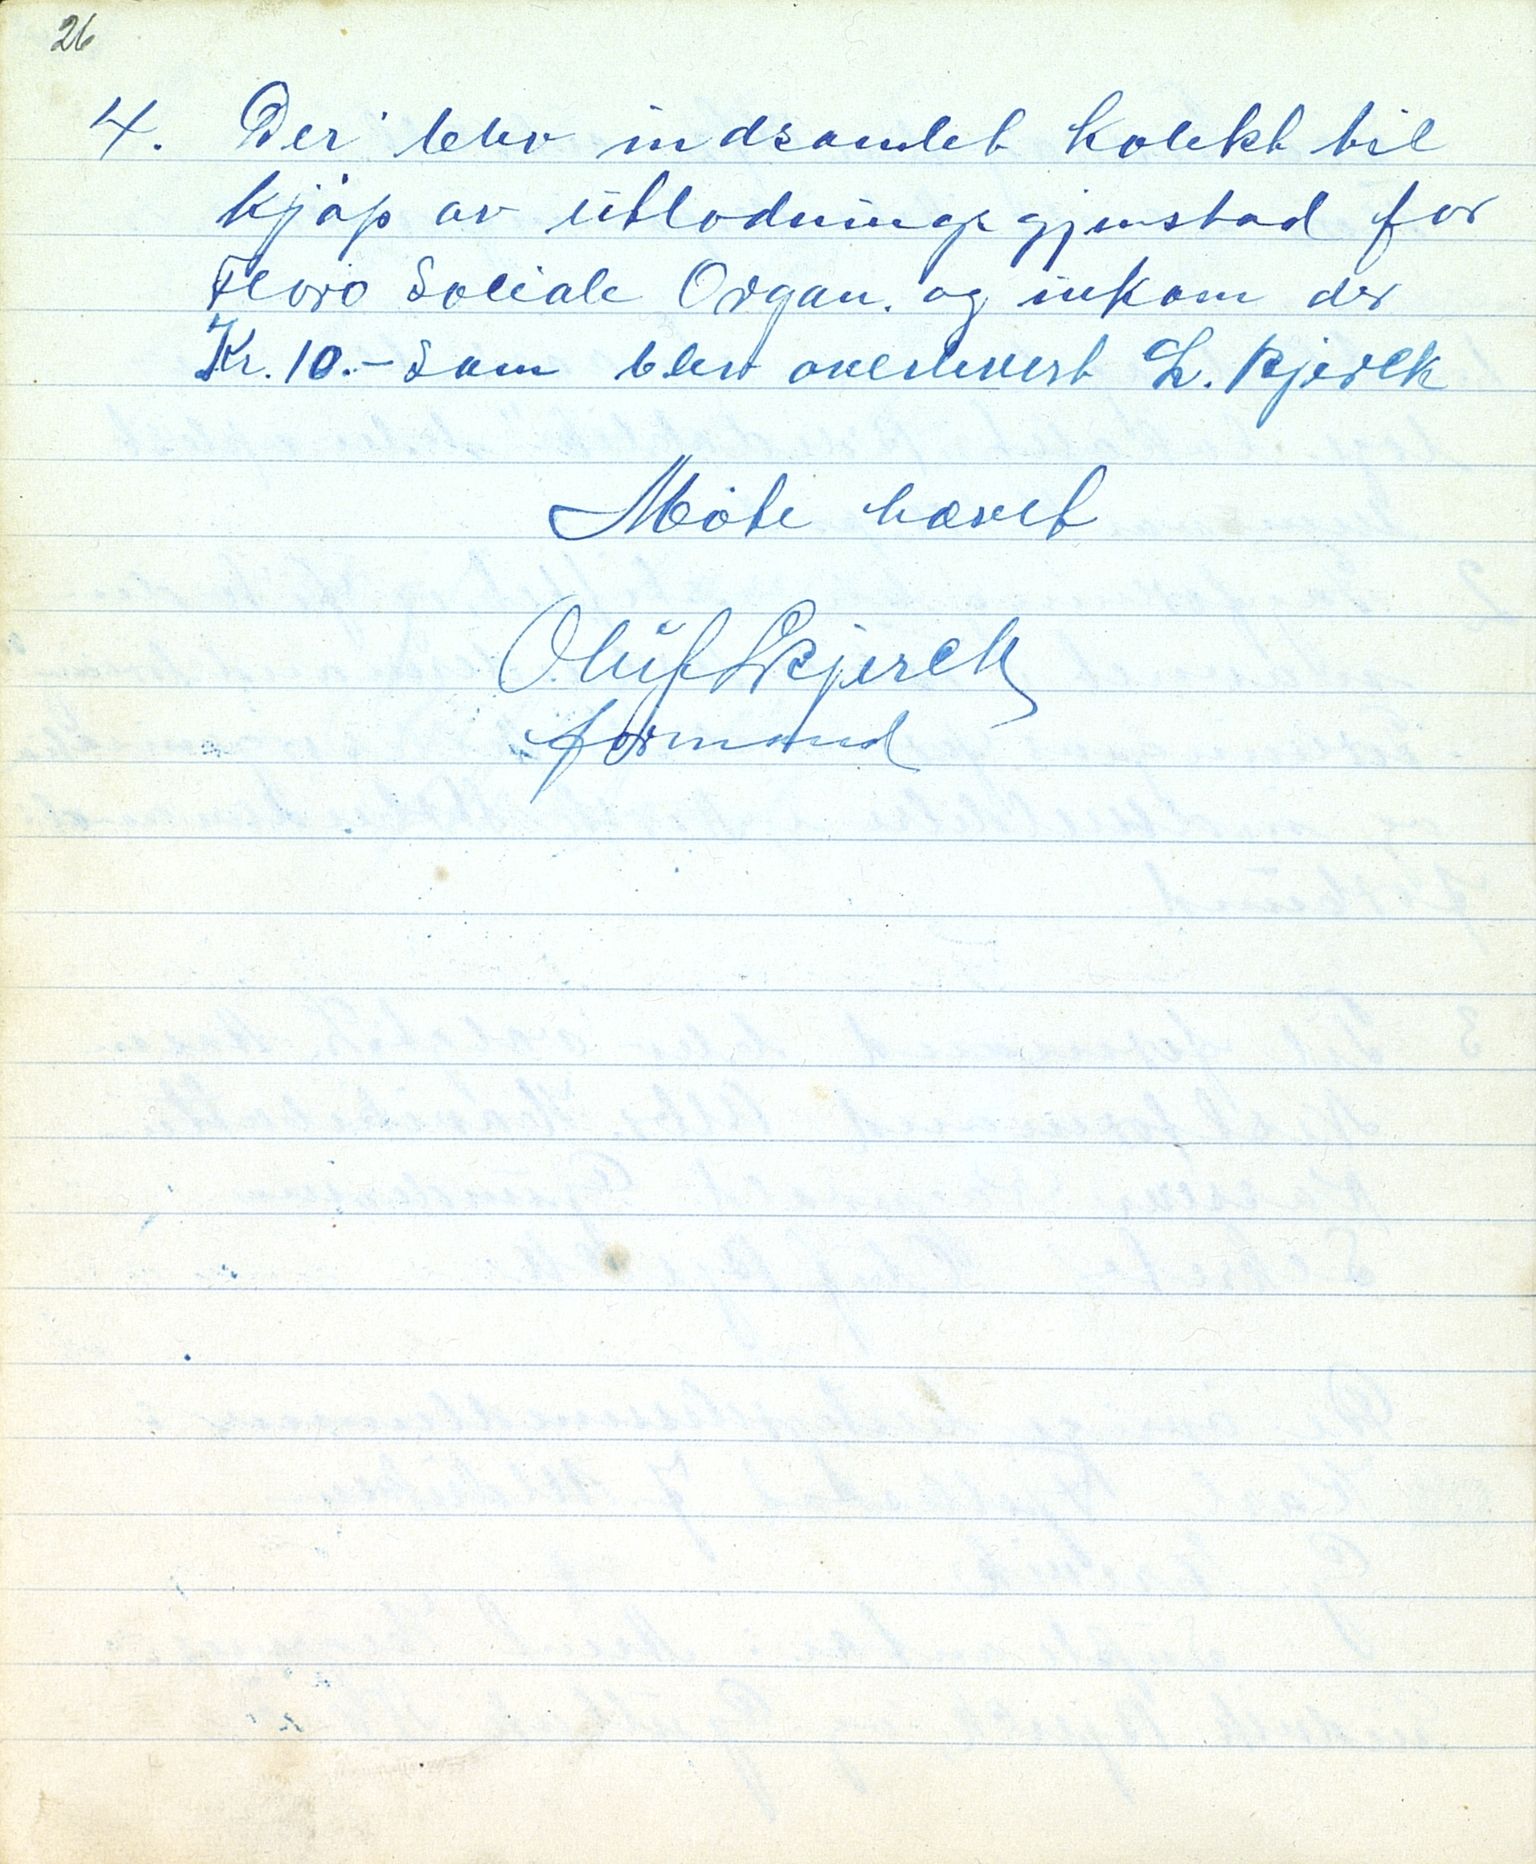 26
4. Der blev indsamlet kolekt til
kjøp av utlodningsgjenstad for
Florø Sosiale Organ. og inkom der
Kr. 10.- som blev overlevert L. Bjerck
Møte hævet
Oluf L Bjerck
formand